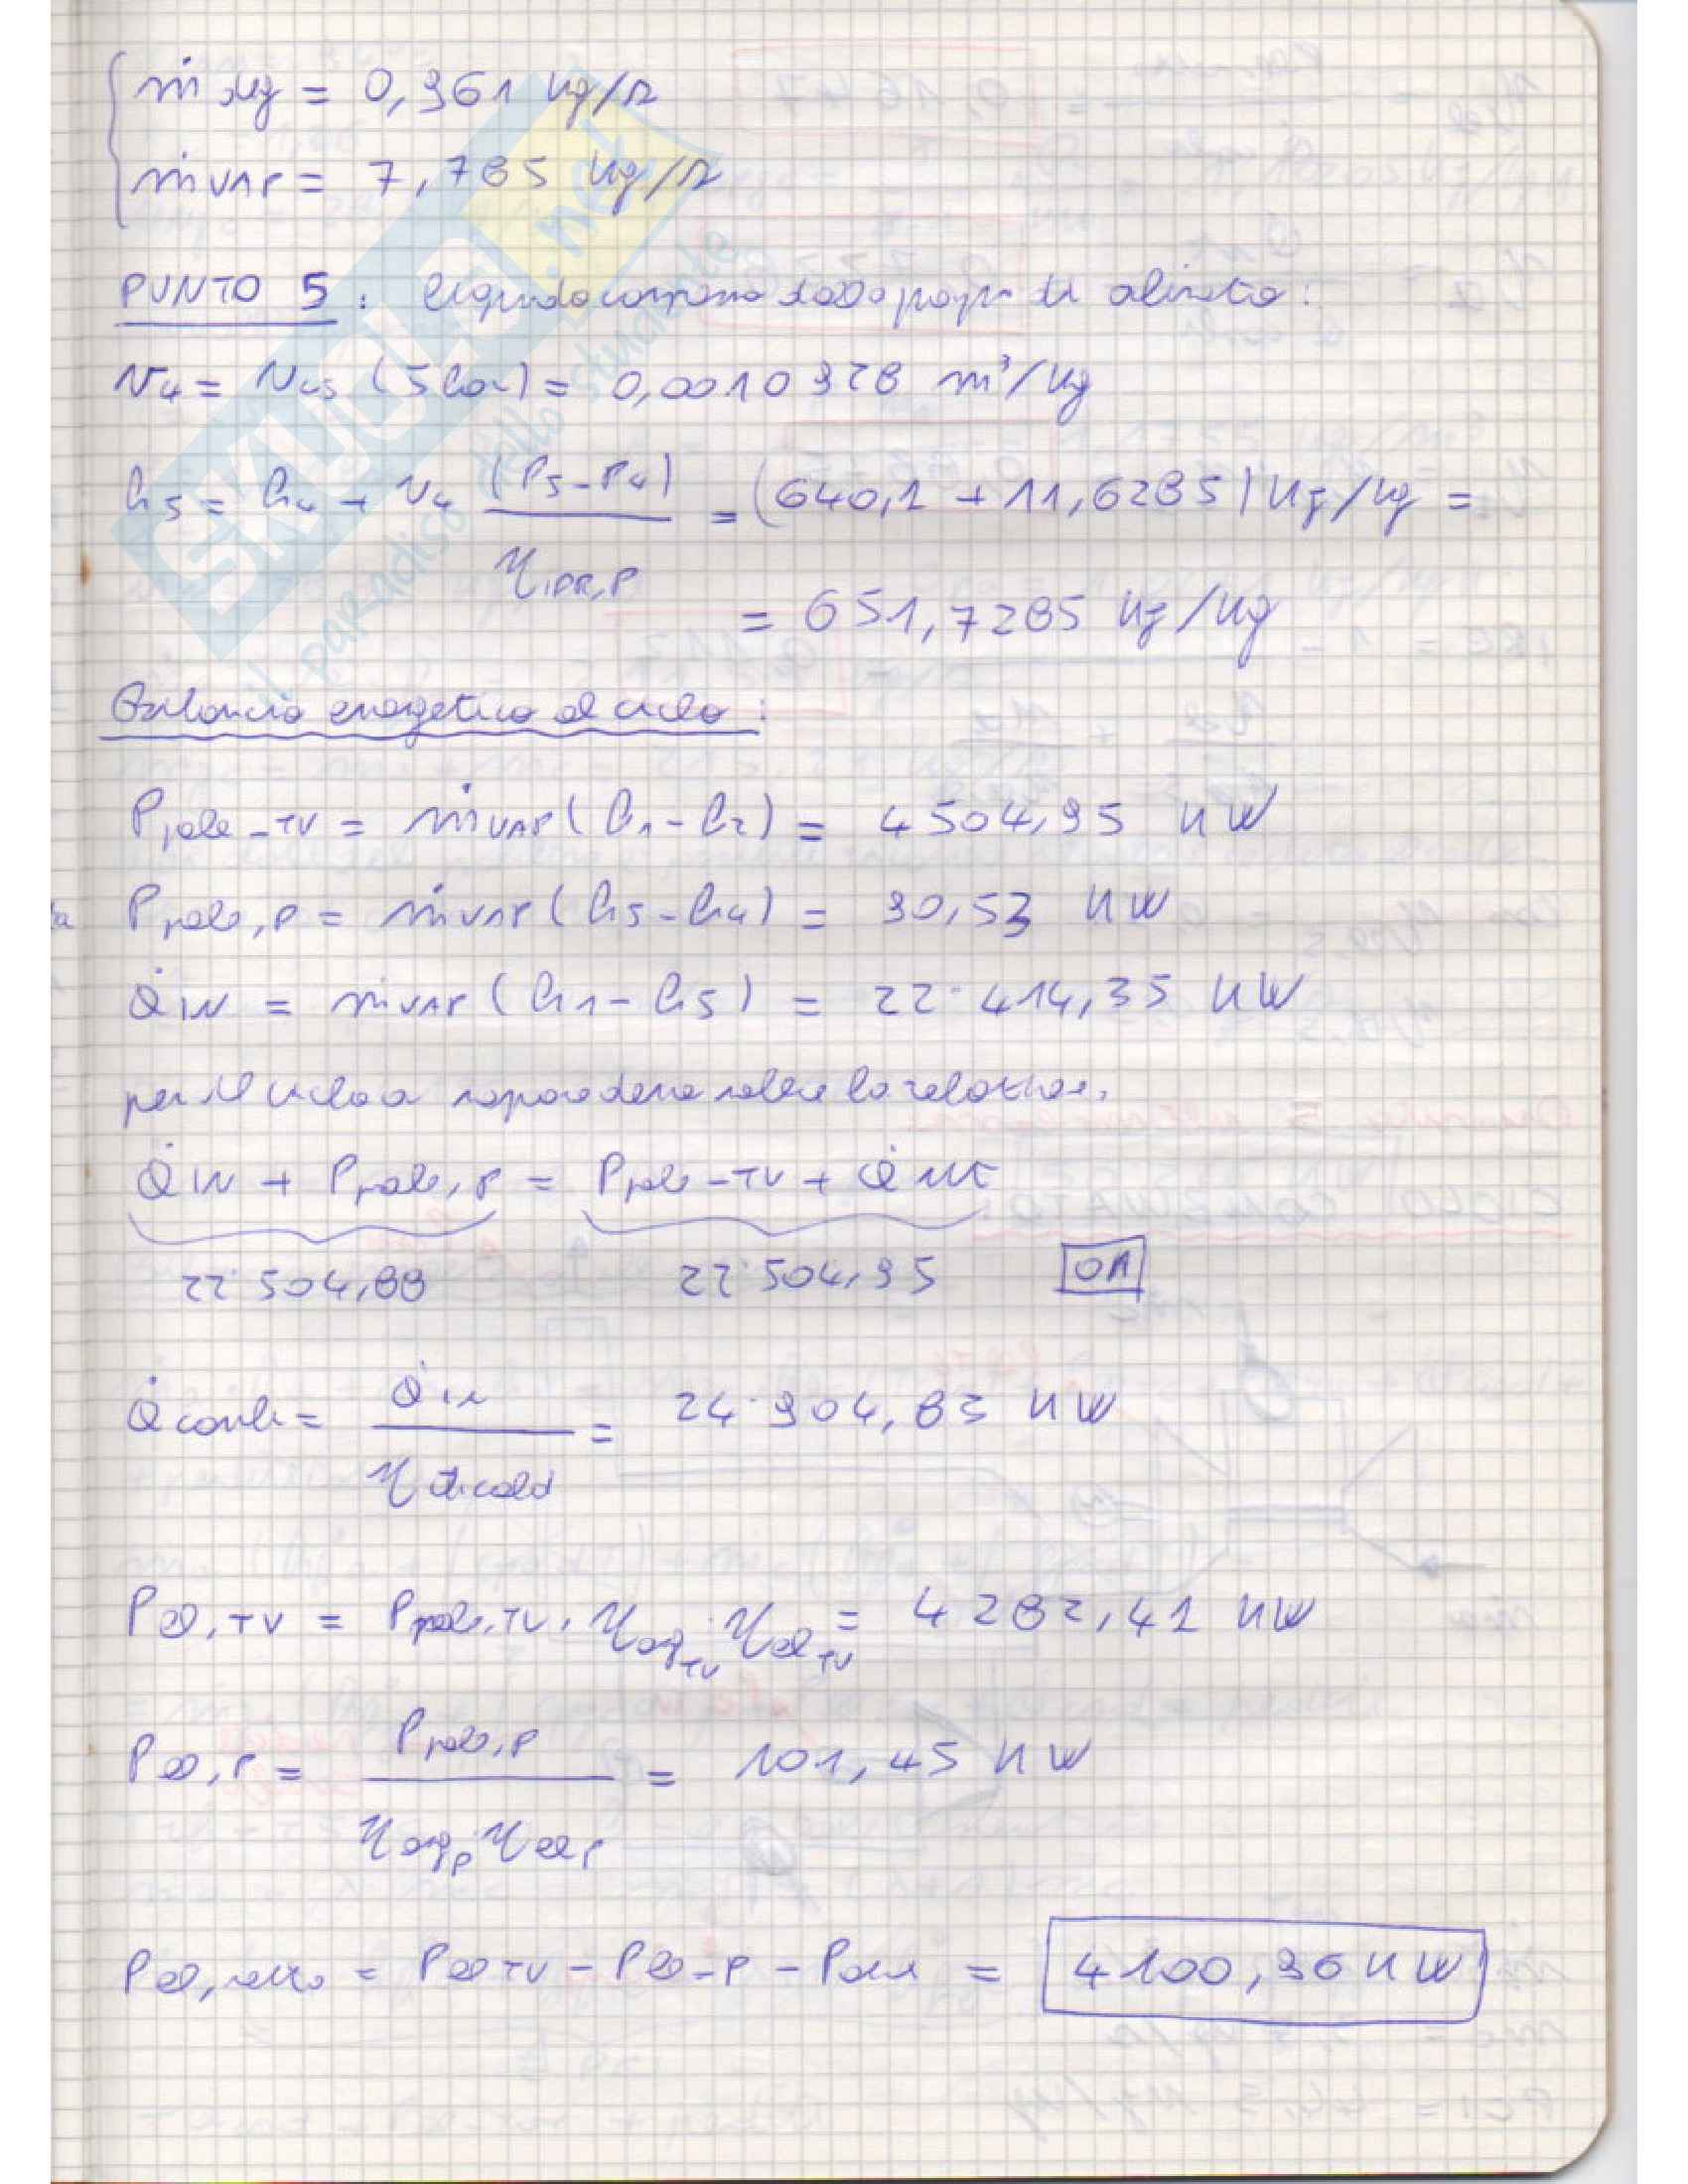 ṁ deg = 0,961 kg/s
ṁ VAP = 7,785 kg/s
PUNTO 5: liquido compresso dalla pompa di alimento:
v4 = vLS (5 bar) = 0,0010928 m³/kg
h5 = h4 + v4 (P5-P4) / ηIDR,P = (640,1 + 11,6285) KJ/kg =
= 651,7285 KJ/kg
Bilancio energetico al ciclo:
Ppale-TV = ṁVAP (h1-h2) = 4504,95 KW
Ppale,P = ṁVAP (h5-h4) = 90,53 KW
Q̇ IN = ṁVAP (h1-h5) = 22˙414,35 KW
per il ciclo a vapore deve valere la relazione:
Q̇ IN + Ppale,P = Ppale-TV + Q̇ out
22˙504,88 22˙504,95 OK
Q̇ comb = Q̇ IN / η th.cald = 24˙904,83 KW
Pel,TV = Ppale,TV · ηorgTV · ηelTV = 4282,41 KW
Pel,P = Ppale,P / ηorgP · ηelP = 101,45 KW
Pel,netto = Pel TV - Pel-P - Paux = 4100,96 KW
SKUOLA.net
il paradiso dello studente